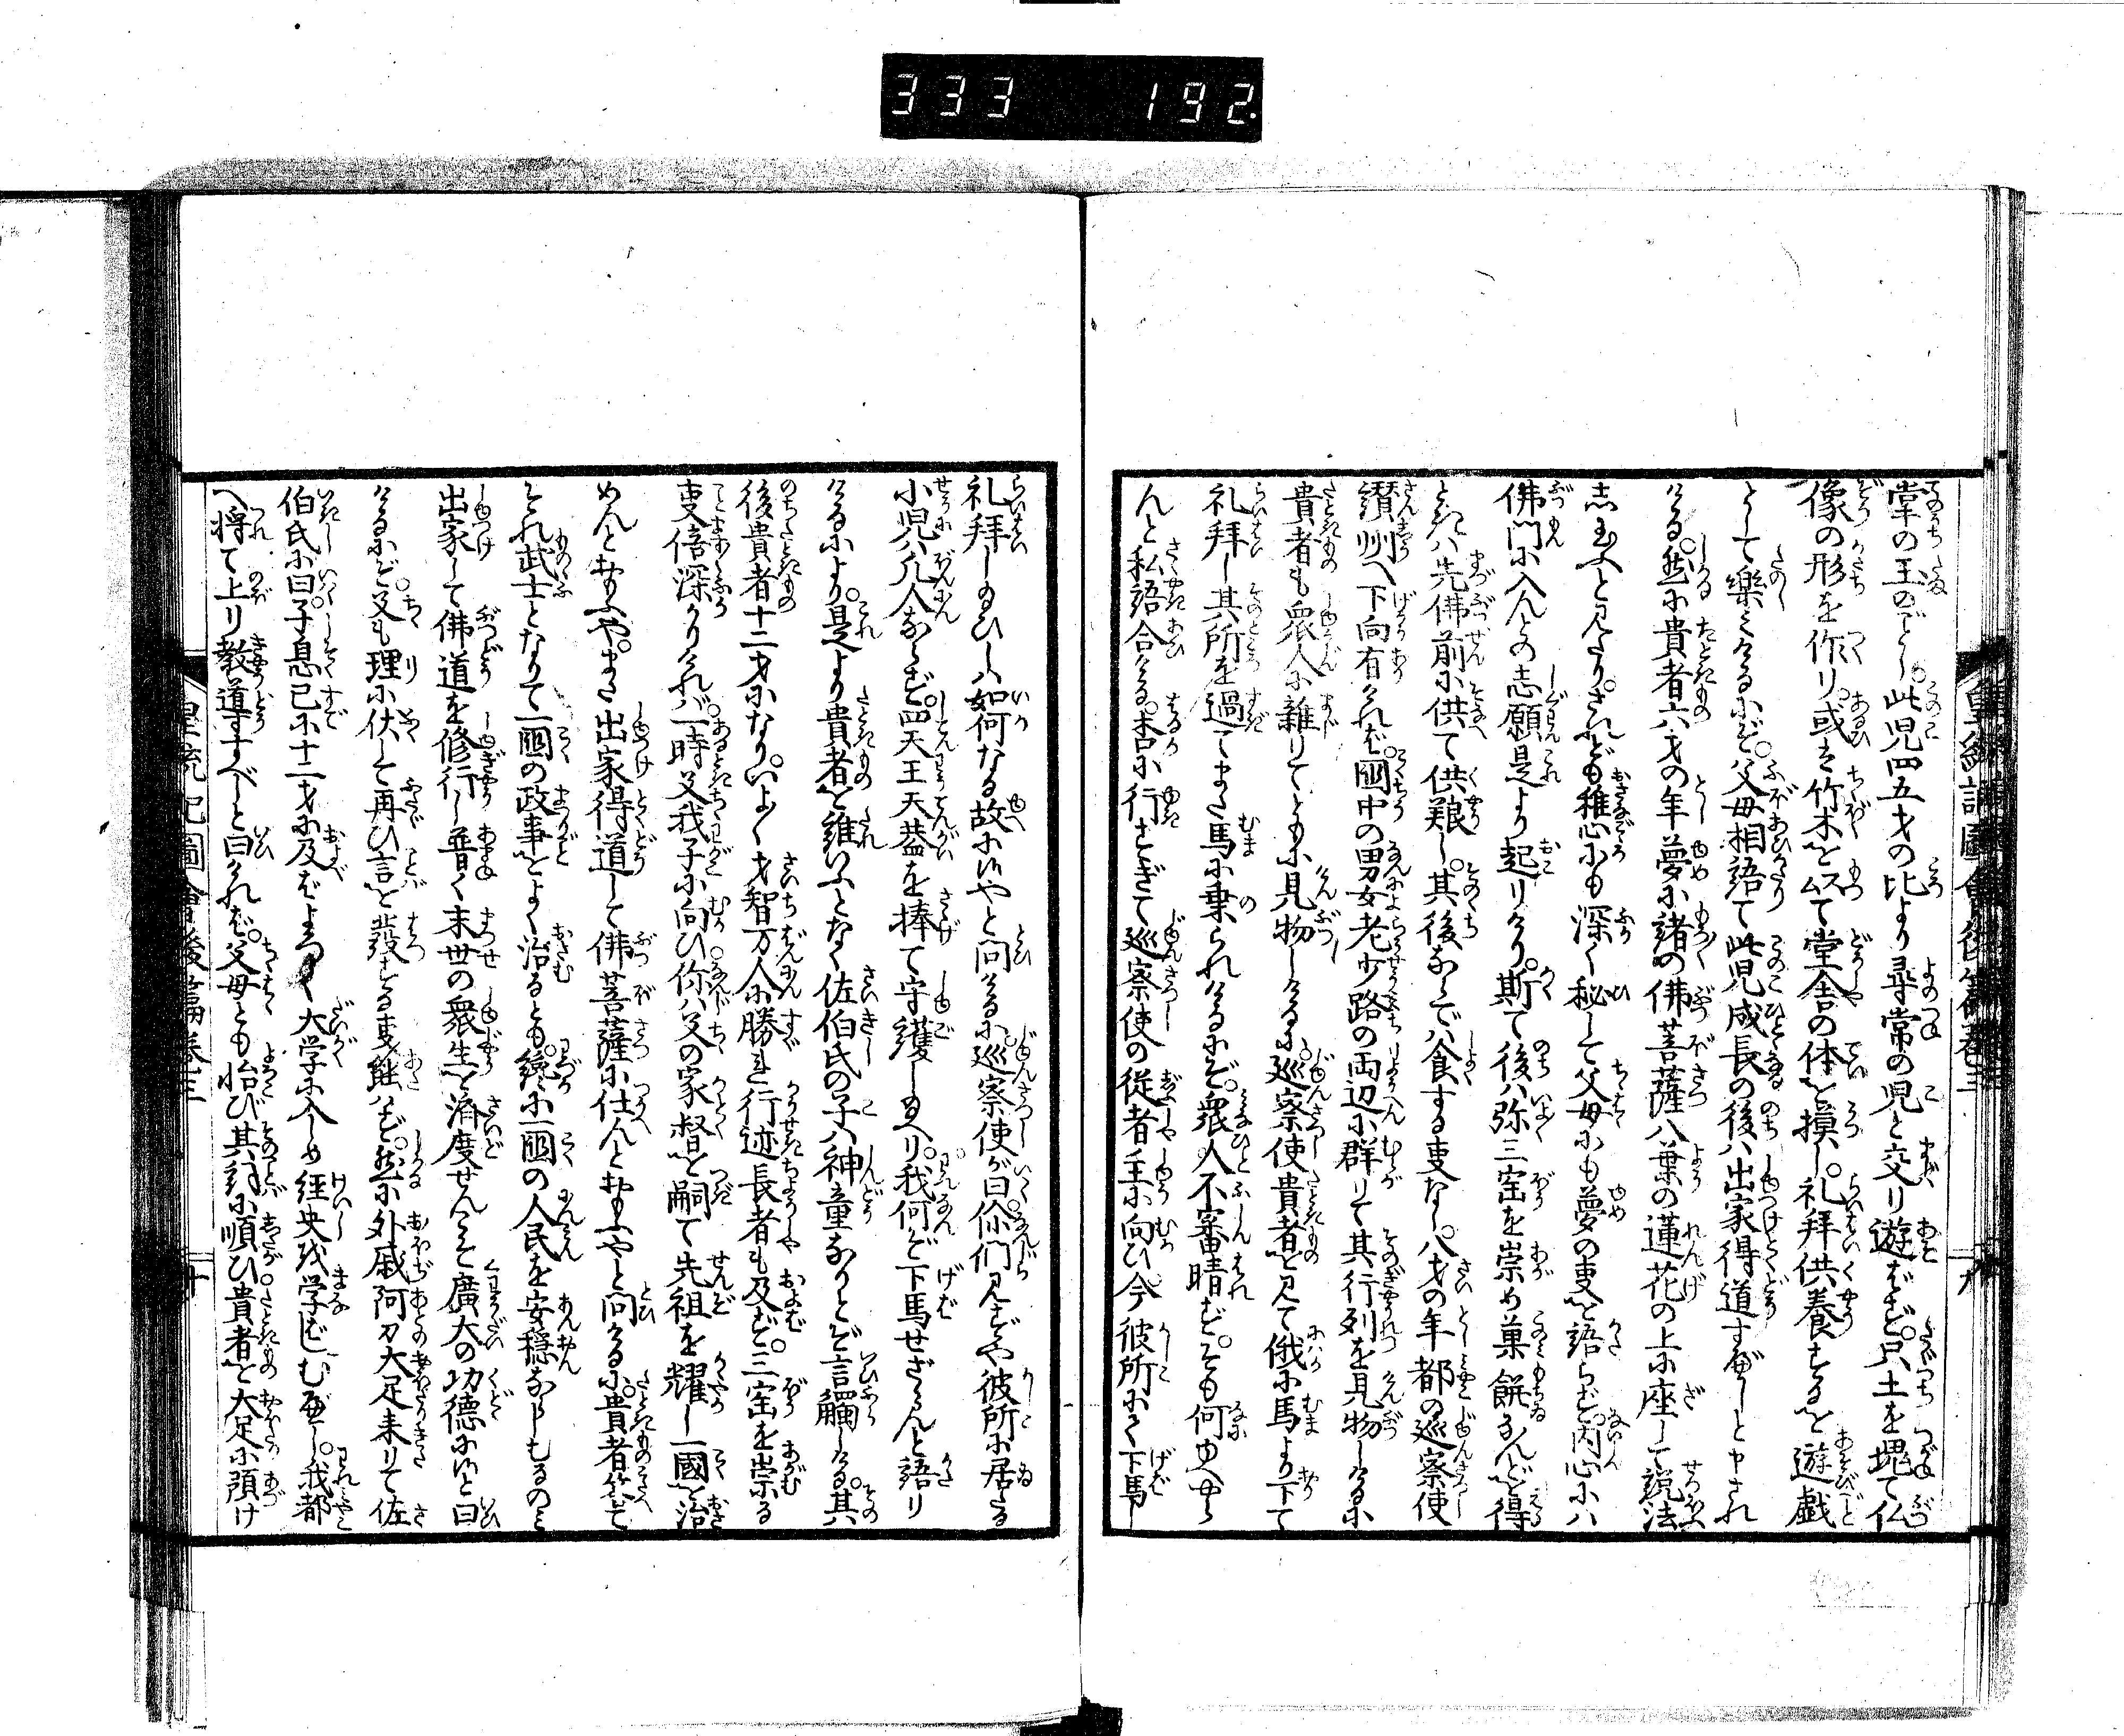 333 192.
掌の玉のごとし。此児四五才の比より尋常の児と交り遊ばず。只土を塊て仏
像の形を作り。或は竹木を以て堂舎の体を摸し。礼拝供養するを遊戯
として楽みけるにぞ。父母相語て此児成長の後ハ出家得道すべしと申され
ける。然に貴者六才の年夢に諸の佛菩薩八葉の蓮花の上に座して説法
し玉ふと見たり。されども稚心にも深く秘して父母にも夢の事を語らず内心にハ
佛門に入んとの志願是より起りけり。斯て後ハ弥三宝を崇め菓餅なんど得
ときハ先佛前に供て供養し。其後ならでハ食する事なし。八才の年都の巡察使
讃州へ下向有けれバ。國中の男女老少路の両辺に群りて其行列を見物しけるに
貴者も衆人に雑りてともに見物しけるに。巡察使貴者を見て俄に馬より下て
礼拝し其所を過てまた馬に乗られけるにぞ。衆人不審晴ず。そも何ゆへやら
んと私語合ける。杳に行すぎて巡察使の従者主に向ひ今彼所にて下馬し
礼拝し玉ひしハ如何なる故にやと問けるに。巡察使が曰你们見ずや彼所に居たる
小児ハ凡人ならず。四天王天蓋を捧て守護し玉へり。我何ぞ下馬せざらんと語り
けるにより。是より貴者を誰いふとなく佐伯氏の子ハ神童なりとぞ言觸しける。其
後貴者十二才になり。いよ〱才智万人に勝れ行迹長者も及ばず。三宝を崇る
事倍深かりけれバ。一時父我子に向ひ。你ハ父の家督を嗣て先祖を耀し一國を治
めんとおもふや。また出家得道して佛菩薩に仕んとおもふやと問けるに。貴者答て
それ武士となりて一國の政事をよく治るとも。纔に一國の人民を安穏ならしむるのミ
出家して佛道を修行し普く末世の衆生を済度せんにそ廣大の功徳にやと曰
けるにぞ。父も理に伏して再び言を發する事能ハず。然に外戚阿刀大足来りて佐
伯氏に曰。子息已に十二才に及バよろしく大学に入しめ経史を学バしむべし。我都
へ将て上り教道すべしと曰けれバ。父母とも怡び其詞に順ひ貴者を大足に預け
皇統記圖會後篇巻三
九
十